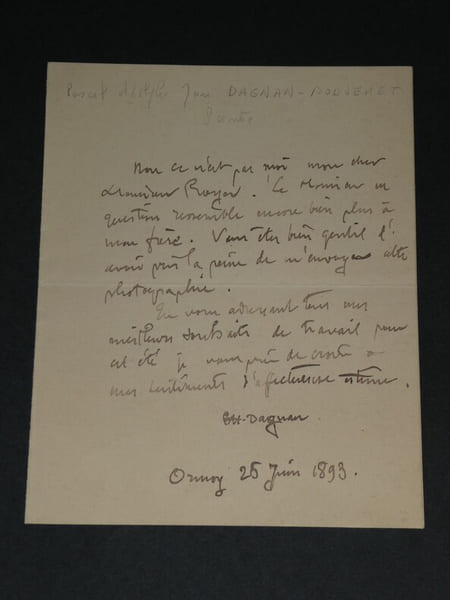 Pascal Adolphe Jean DAGNAN-BOUVERET
Peintre
Non ce n'est pas moi mon cher
Monsieur Royer. Le Monsieur en
question ressemble encore bien plus à
mon frère. Vous êtes bien gentil d'
avoir pris la peine de m'envoyer cette
photographie.
En vous adressant tous mes
meilleurs souhaits de travail pour
cet été je vous prie de croire à
mes sentiments d'affectueuse estime.
Dagnan
Ormoy 25 Juin 1893.